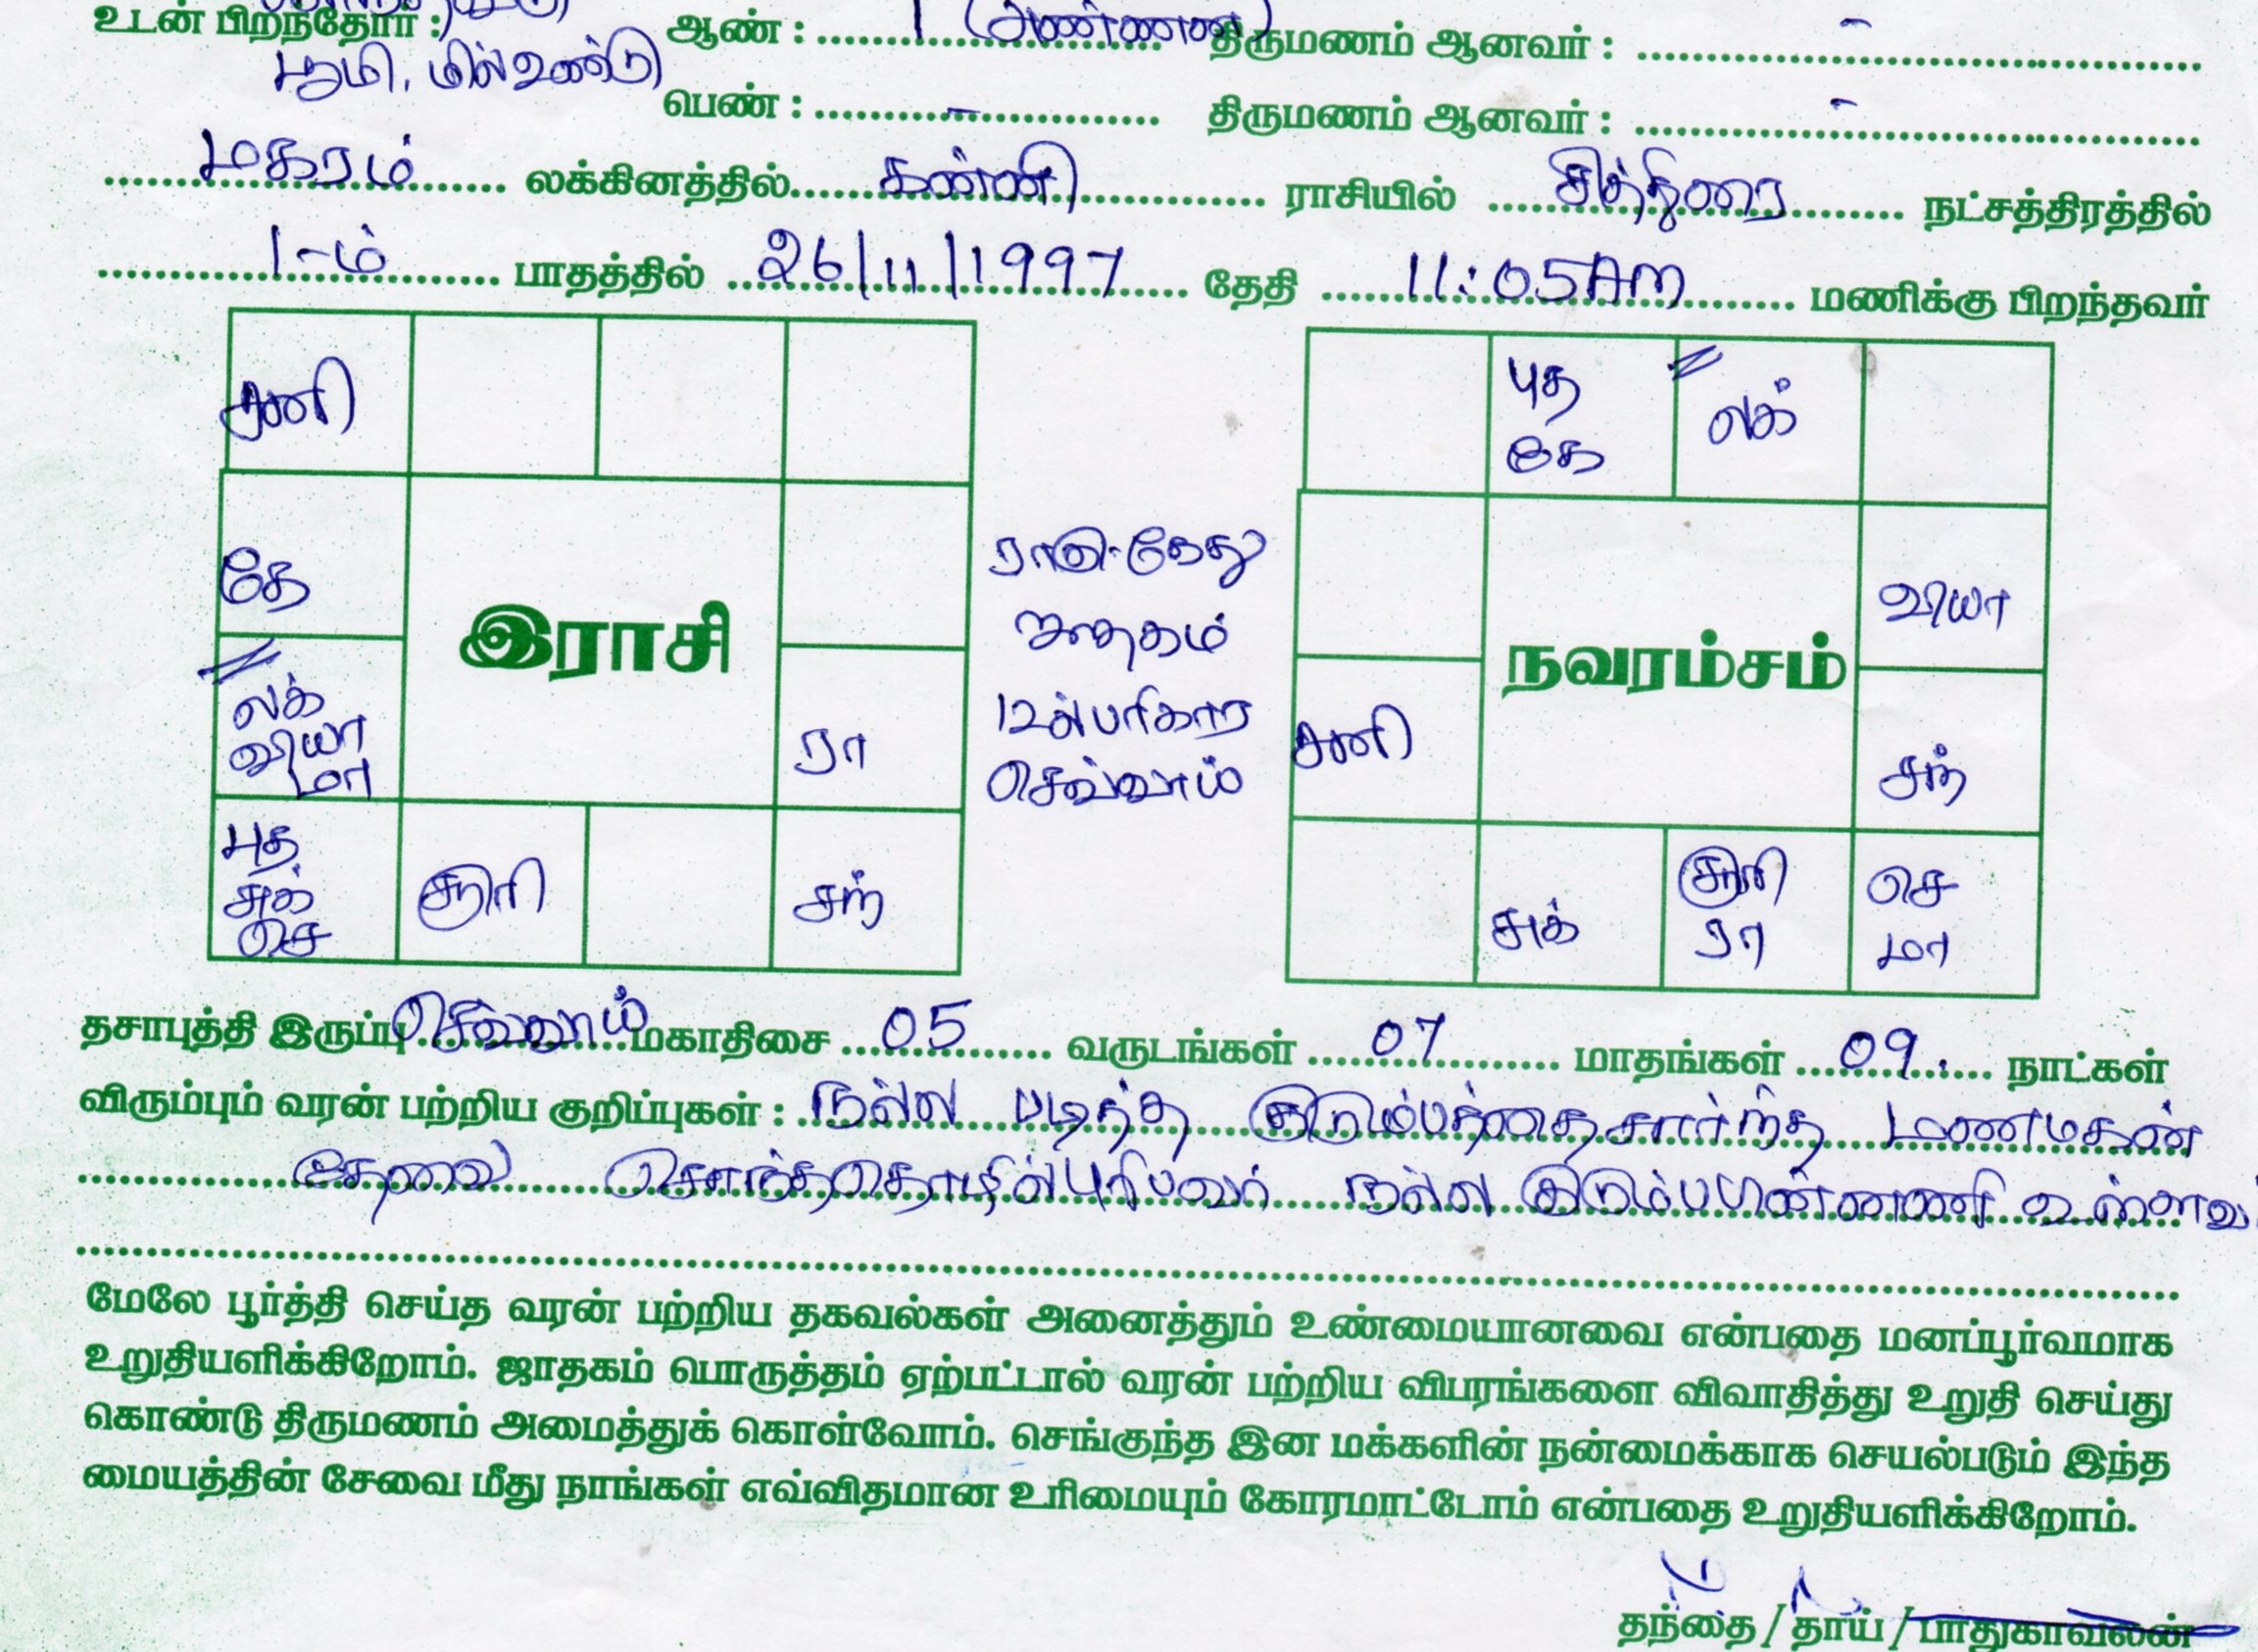 உடன் பிறந்தோர் : ஆண் : 1 (அண்ணன்) திருமணம் ஆனவர் : -
பூமி, மில் உண்டு
பெண் : - திருமணம் ஆனவர் : -
மகரம் லக்கினத்தில் கன்னி ராசியில் சித்திரை நட்சத்திரத்தில்
1-ம் பாதத்தில் 26/11/1997 தேதி 11:05 AM மணிக்கு பிறந்தவர்
சனி
கே
இராசி
லக்
வியா
மா
ரா
புத
சுக்
செ
சூரி
சந்
ராகு-கேது
ஜாதகம்
12ல் பரிகார
செவ்வாய்
புத
கே
லக்
வியா
நவரம்சம்
சனி
சந்
சுக்
சூரி
ரா
செ
மா
தசாபுத்தி இருப்பு செவ்வாய் மகாதிசை 05 வருடங்கள் 07 மாதங்கள் 09. நாட்கள்
விரும்பும் வரன் பற்றிய குறிப்புகள் : நல்ல படித்த குடும்பத்தை சார்ந்த மணமகன்
தேவை சொந்ததொழில் புரிபவர் நல்ல குடும்ப பின்னணி உள்ளவ
மேலே பூர்த்தி செய்த வரன் பற்றிய தகவல்கள் அனைத்தும் உண்மையானவை என்பதை மனப்பூர்வமாக
உறுதியளிக்கிறோம். ஜாதகம் பொருத்தம் ஏற்பட்டால் வரன் பற்றிய விபரங்களை விவாதித்து உறுதி செய்து
கொண்டு திருமணம் அமைத்துக் கொள்வோம். செங்குந்த இன மக்களின் நன்மைக்காக செயல்படும் இந்த
மையத்தின் சேவை மீது நாங்கள் எவ்விதமான உரிமையும் கோரமாட்டோம் என்பதை உறுதியளிக்கிறோம்.
தந்தை / தாய் / பாதுகாவலன்